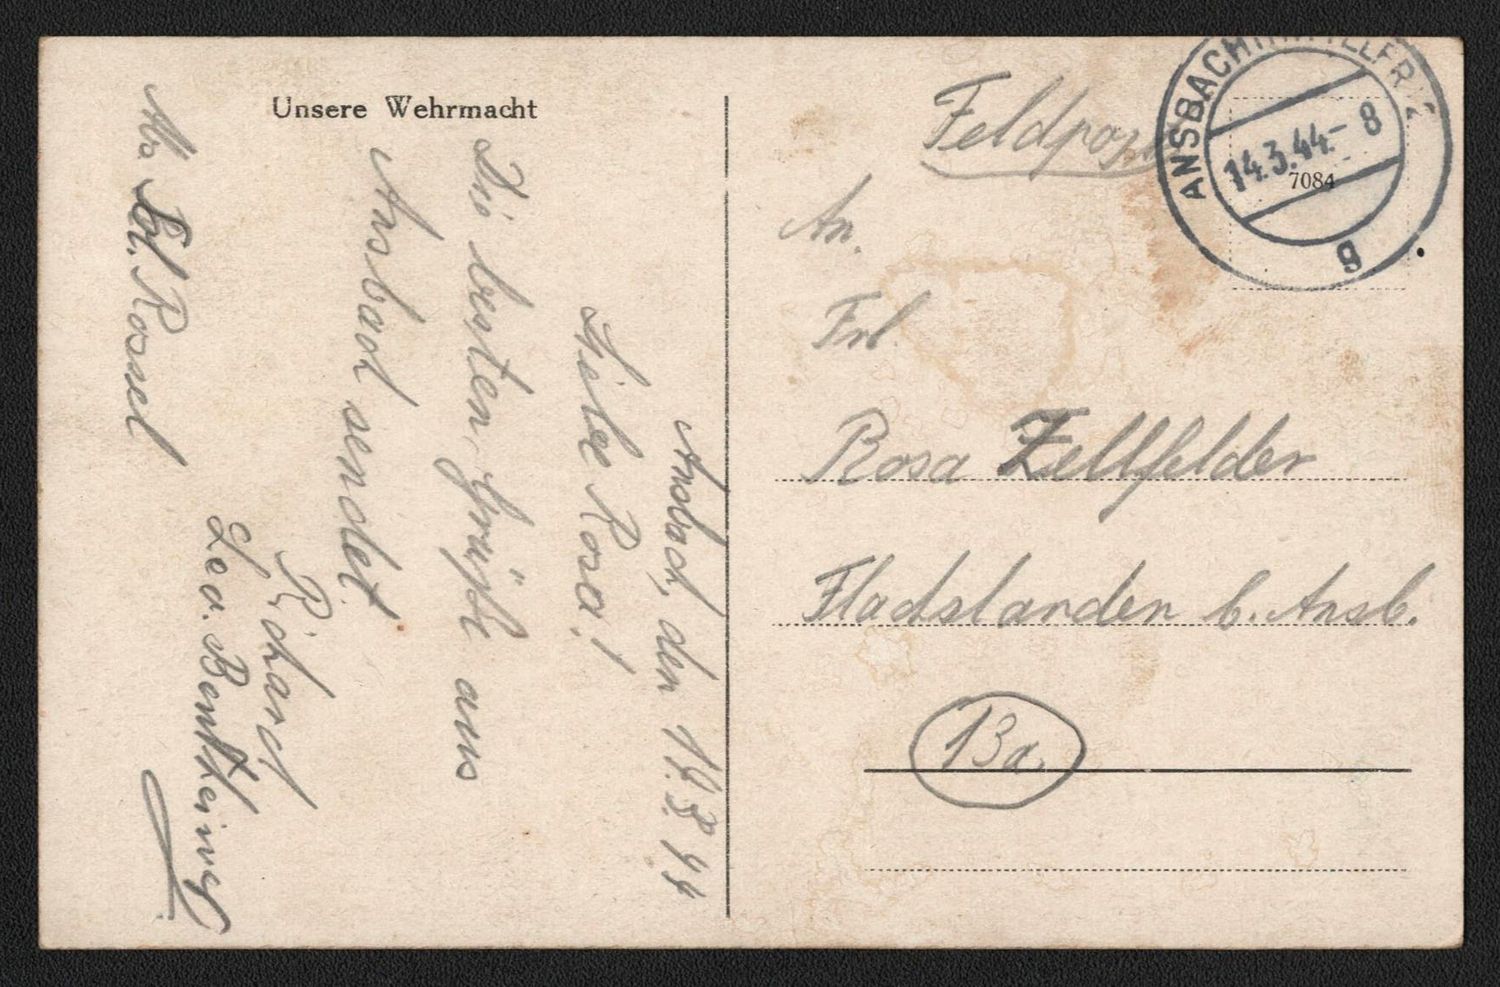 Unsere Wehrmacht
Ansbach, den 14.3.44
Liebe Rosa!
Die besten Grüße aus
Ansbach sendet
Richard
Leo.
Rossel
Feldpost
ANSBACH (MITTELFR)
14.3.44.- 8
g
7084
An.
Frl.
Rosa Zellfelder
Flachslanden b. Ansb.
13a.